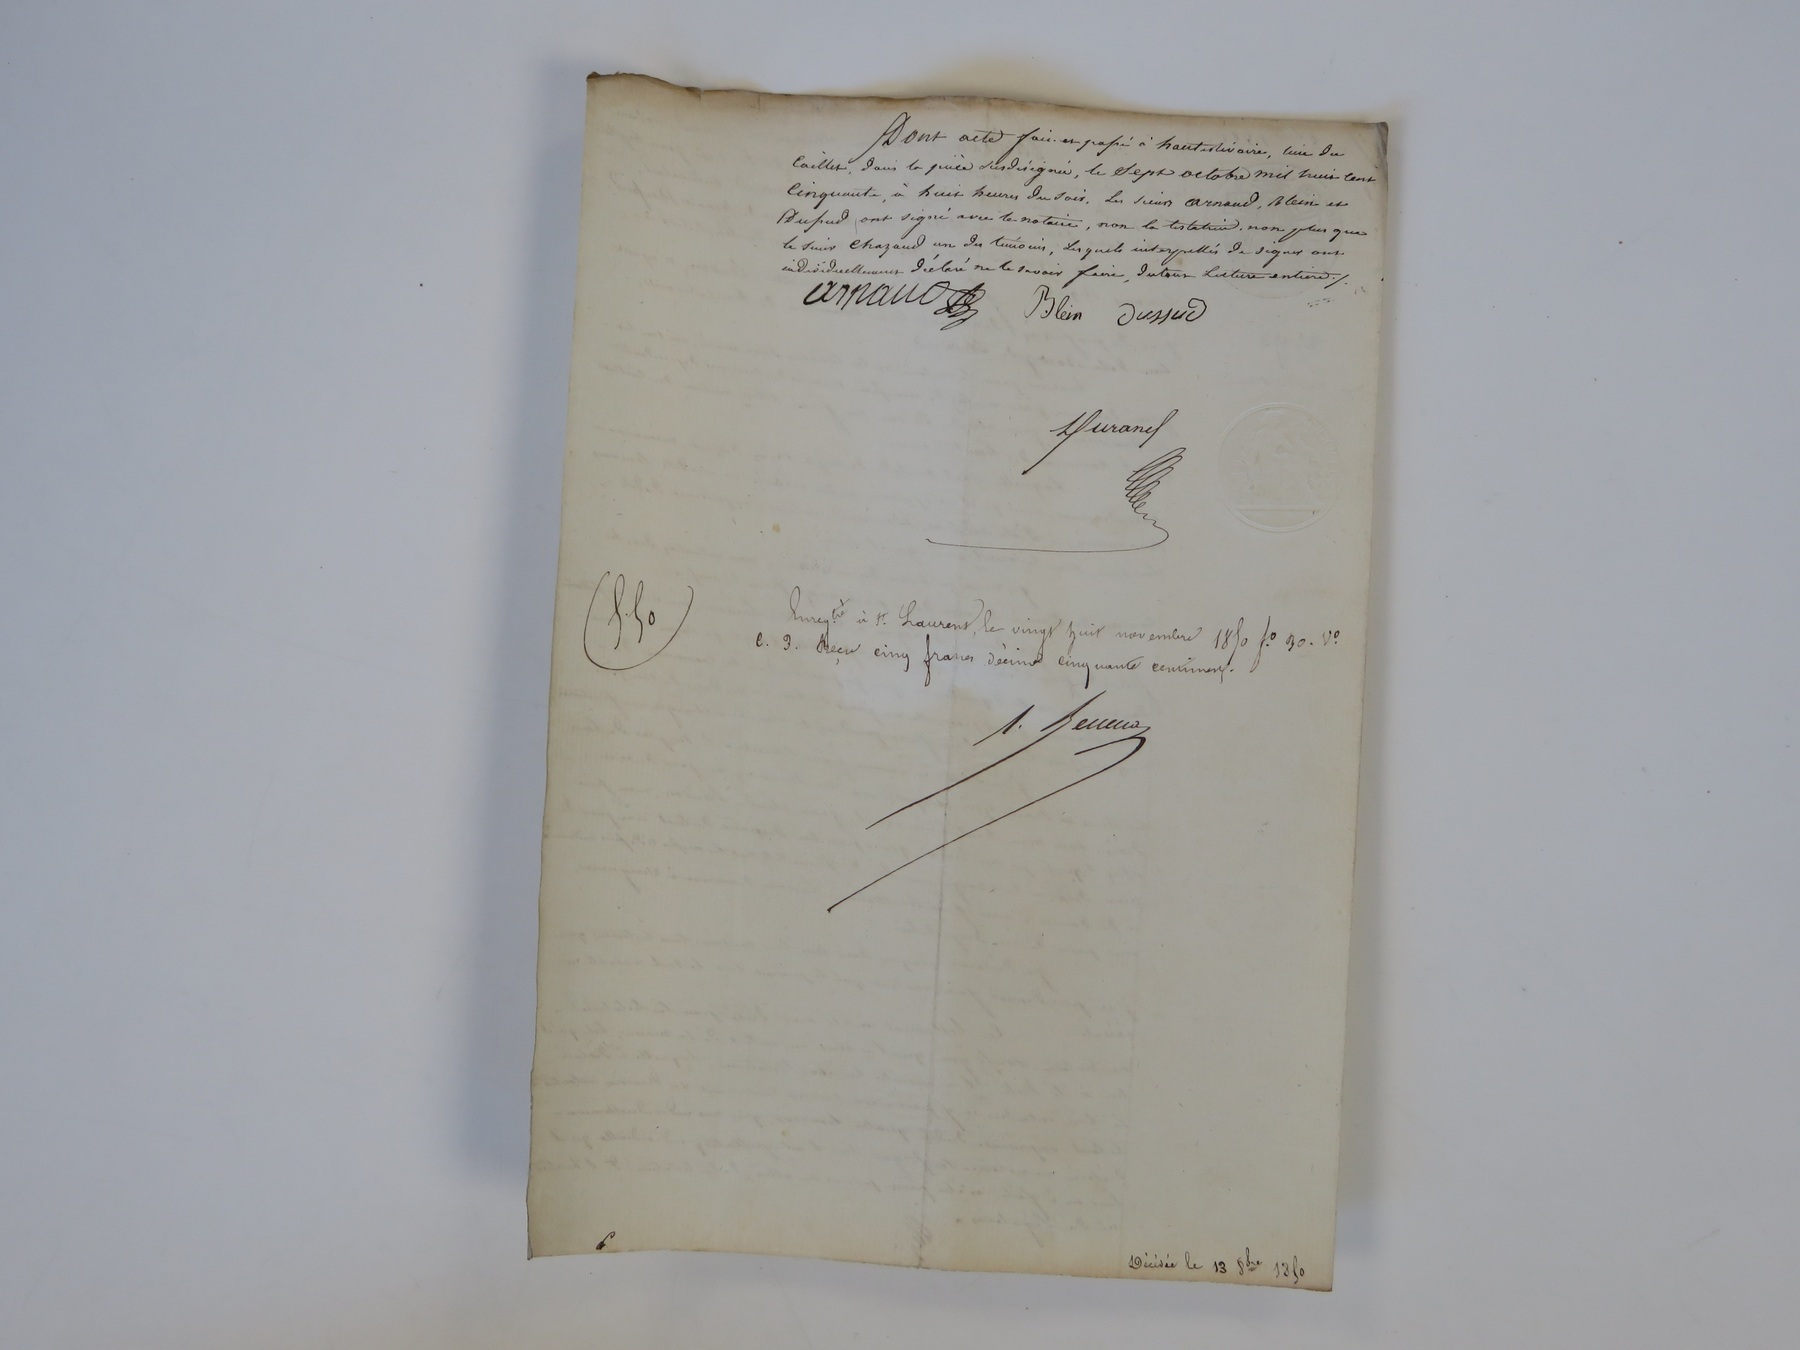 Dont acte fait et passé à hauterivoire, lieu du
Caillet, dans la pièce susdésignée, le Sept octobre mil huit cent
Cinquante, à huit heures du soir. Les sieurs arnaud, Blein et
Dussud ont signé avec le notaire, non la testatrice, non plus que
le sieur Chazaud un des témoins, Lesquels interpellés de signer ont
individuellement déclaré ne le savoir faire, du tout Lecture entière ./.
arnaud Blein Dussud
Durand
5.50
Enregtré à St. Laurent, le vingt huit novembre 1850 fo 30. Vo
C. 3. Reçu cinq francs décime cinquante centimes.
Décédée le 13 8bre 1850